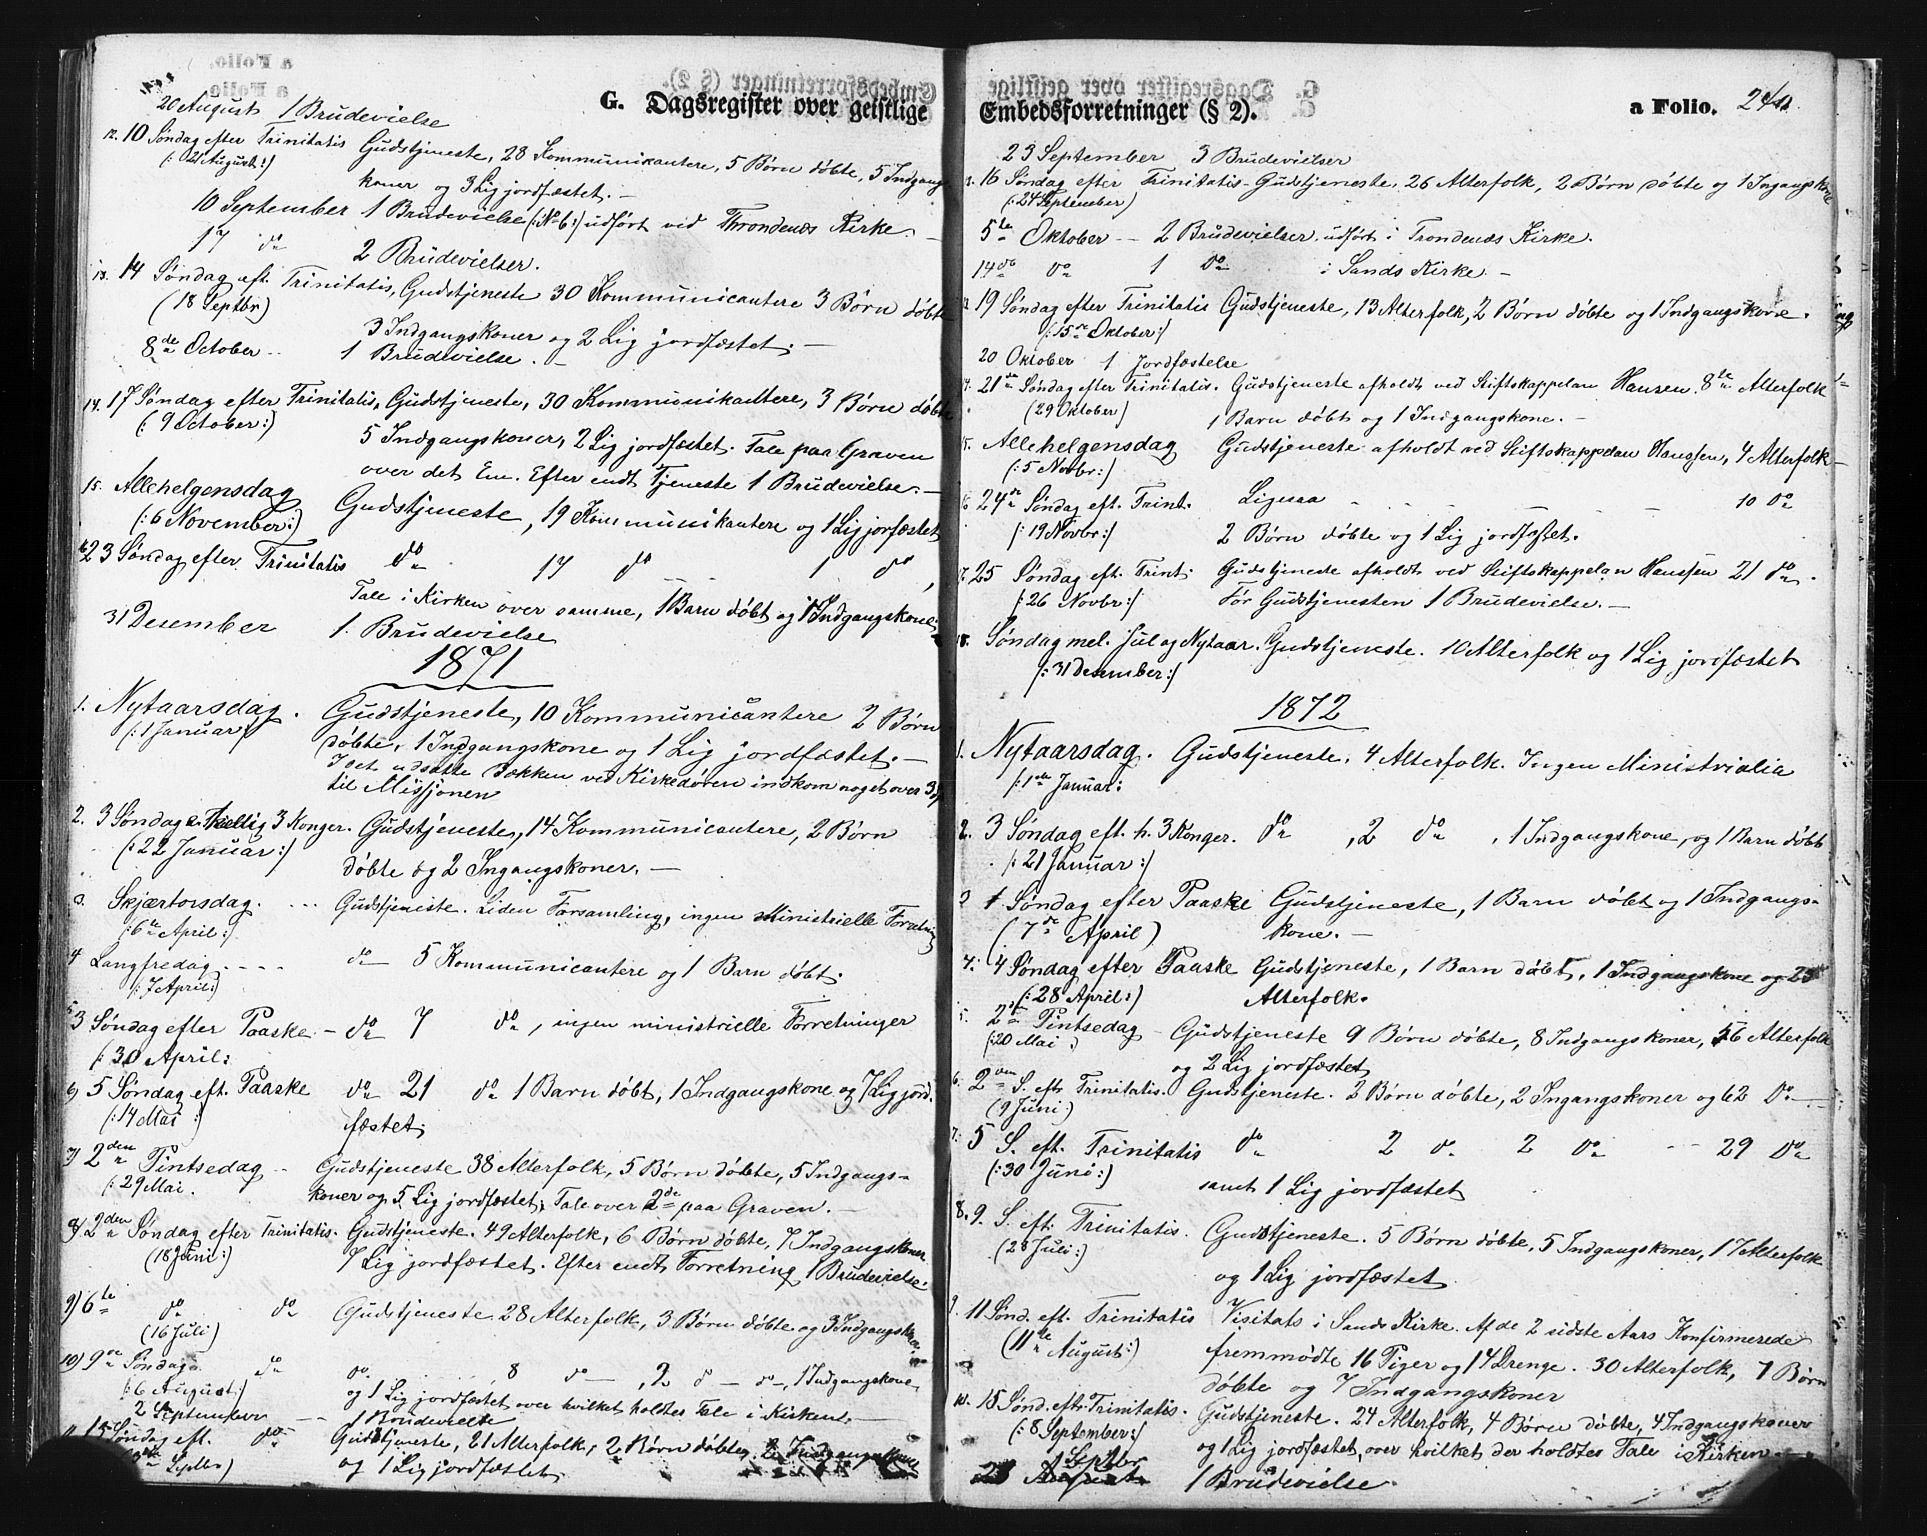 G. Dagsregister over geistlige
20 August 1 Brudevielse
12. 10 Søndag efter Trinitatis Gudstjeneste, 28 Kommunikantere, 5 Børn døbte, 5 Indgangs
(: 21 August :) koner og 3 Lig jordfæstet. —
10 September 1 Brudevielse (: No 6 :) udført ved Throndenæs Kirke. —
17 do 2 Brudevielser.
13. 14 Søndag eft. Trinitatis, Gudstjeneste 30 Kommunicantere 3 Børn døbte
(18 Septbr) 3 Indgangskoner og 2 Lig jordfæstet. —
8de October .. 1 Brudevielse. —
14. 17 Søndag efter Trinitatis, Gudstjeneste, 30 Kommunikantere, 3 Børn døbte
(: 9 October :) 5 Indgangskoner, 2 Lig jordfæstet. Tale paa Graven
over det Ene. Efter endt Tjeneste 1 Brudevielse. —
15. Allehelgensdag Gudstjeneste, 19 Kommunikantere og 1 Lig jorfæstet
(: 6 November :)
16 23 Søndag efter Trinitatis do 17 do 1 do,
Tale i Kirken over samme, 1 Barn døbt og 1 Indgangskone.
31 Desember 1. Brudevielse
1871
1. Nytaarsdag. Gudstjeneste, 10 Kommunicantere 2 Børn
(: 1 Januar :) døbte, 1 Indgangskone og 1 Lig jordfæstet. —
I det udsatte Bækken ved Kirkedøren indkom noget over 3
til Missjonen
2. 3 Søndag e. Hellig 3 Konger. Gudstjeneste, 14 Kommunicantere, 2 Børn
(: 22 Januar :) døbte og 2 Ingangskoner. —
3. Skjærtorsdag. ... Gudstjeneste. Liden Forsamling, ingen Ministrielle Forretning
(: 6te April :)
4 Langfredag. ... do 5 Kommunicantere og 1 Barn døbt.
(: 7 April :)
5 3 Søndag efter Paaske. — do 7 do, ingen ministrielle Forretninger
(: 30 April :
6) 5 Søndag eft. Paaske do 21 do 1 Barn døbt, 1 Indgangskone og 7 Lig jord.
(: 14 Mai :) fæstet.
7) 2den Pintsedag .. Gudstjeneste 38 Alterfolk, 5 Børn døbte, 5 Indgangs-
(: 29 Mai. koner og 5 Lig jordfæstet, Tale over 2de paa Graven. —
8) 2den Søndag efter Trinitatis. Gudstjeneste. 49 Alterfolk, 6 Børn døbte, 7 Indgangskoner
(18 Juni :) 7 Lig jordfæstet. Efter endt Forretning 1 Brudevielse.
9) 6te do do Gudstjeneste. 28 Alterfolk, 3 Børn døbte og 3 Indgangskoner
(16 Juli)
10) 9de Søndag do do 8 do —, 2 d — d —, 1 Indgangskone,
(: 6 August :) og 1 Lig jordfæstet over hvilket holdtes Tale i Kirken.
2 September — 1 Brudevielse
11 15 Søndag eft. do Gudstjeneste, 21 Alterfolk, 2 Børn døbte, 2 Indgangskoner
Septbr) og 1 Lig jordfæstet.
Embedsforretninger (§ 2). a Folio. 240.
23 September 3 Brudevielser
12. 16 Søndag efter Trinitatis Gudstjeneste. 26 Alterfolk, 2 Børn døbte og 1 Ingangskone
(: 24 September)
5te Oktober — 2 Brudevielser, udført i Trondenæs Kirke.
14de do 1 do i Sands Kirke. —
13 19 Søndag efter Trinitatis Gudstjeneste, 13 Alterfolk, 2 Børn døbte og 1 Indgangskone.
(: 15de Oktober :)
20 Oktober 1 Jordfæstelse
14. 21de Søndag efter Trinitatis. Gudstjeneste afholdt ved Stiftskappelan Hansen. 8te Alterfolk
(29 Oktober) 1 Barn døbt og 1 Indgangskone. —
15. Allehelgensdag Gudstjeneste afholdt ved Stiftskappelan Hanssen, 4 Alterfolk —
(: 5 Novbr :)
16 24de Søndag eft. Trint. Ligesaa — 10 do
(: 19 Novbr :) 2 Børn døbte og 1 Lig jordfæstet.
17. 25 Søndag eft. Trint. Gudstjeneste afholdt ved Stiftskappelan Hanssen 21 do.
(: 26 Novbr :) Før Gudstjenesten 1 Brudevielse. —
18. Søndag mel. Jul og Nytaar. Gudstjeneste. 10 Alterfolk og 1 Lig jordfæstet
(: 31 Desember :)
1872
1. Nytaarsdag. Gudstjeneste, 4 Alterfolk. Ingen Ministrialia
(: 1ste Januar :
2. 3 Søndag eft. h. 3 Konger. do, 2 do, 1 Indgangskone, og 1 Barn døbt
(: 21 Januar :)
3 1 Søndag efter Paaske Gudstjeneste, 1 Barn døbt og 1 Indgangs-
(7de April) kone. —
4. 4 Søndag efter Paaske Gudstjeneste, 1 Barn døbt, 1 Indgangskone og 23
(: 28 April :) Alterfolk.
5. 2den Pintsedag — Gudstjeneste 9 Børn døbte, 8 Indgangskoner, 56 Alterfolk
(: 20 Mai :) og 2 Lig jordfæstet
6. 2den S. eft. Trinitatis. Gudstjeneste. 2 Børn døbte, 2 Ingangskoner og 62 do —
(9 Juni)
7. 5 S. eft. Trinitatis do 2 do 2 do — 29 do
(: 30 Juni :) samt 1 Lig jordfæstet
8. 9. S. eft. Trinitatis. Gudstjeneste. 5 Børn døbte, 5 Indgangskoner, 17 Alterfolk
(28 Juli :) og 1 Lig jordfæstet
9. 11 Sønd. eft. Trinitatis Visitats i Sands Kirke. Af de 2 sidste Aars Konfirmerede
(11te August :) fremmødte 16 Piger og 14 Drenge. 30 Alterfolk, 7 Børn
døbte og 7 Indgangskoner
10. 15 Sønd. eft. Trinitatis. Gudstjeneste. 24 Alterfolk, 4 Børn døbte, 4 Indgangskoner
(: 8 September :) og 1 Lig jordfæstet, over hvilket der holdtes Tale i Kirken —
Septbr
23 August 1 Brudevielse.